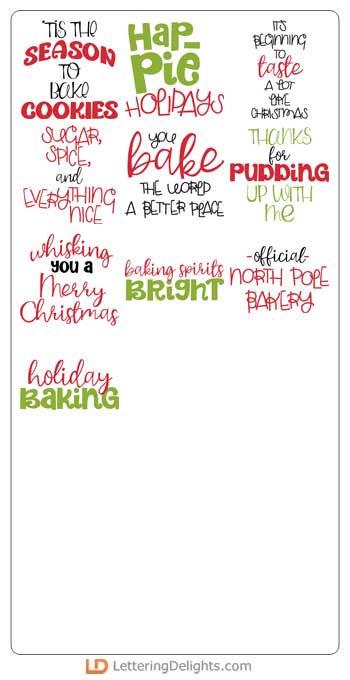 'TIS THE
SEASON
TO
BAKE
COOKIES
HAP-
PIE
HOLIDAYS
IT'S
BEGINNING
TO
taste
A LOT
LIKE
CHRISTMAS
SUGAR,
SPICE,
and
EVERYTHING
NICE
you
bake
THE WORLD
A BETTER PLACE
THANKS
for
PUDDING
UP WITH
me
whisking
YOU A
Merry
Christmas
baking spirits
BRIGHT
-official-
NORTH POLE
BAKERY
holiday
BAKING
LD LetteringDelights.com